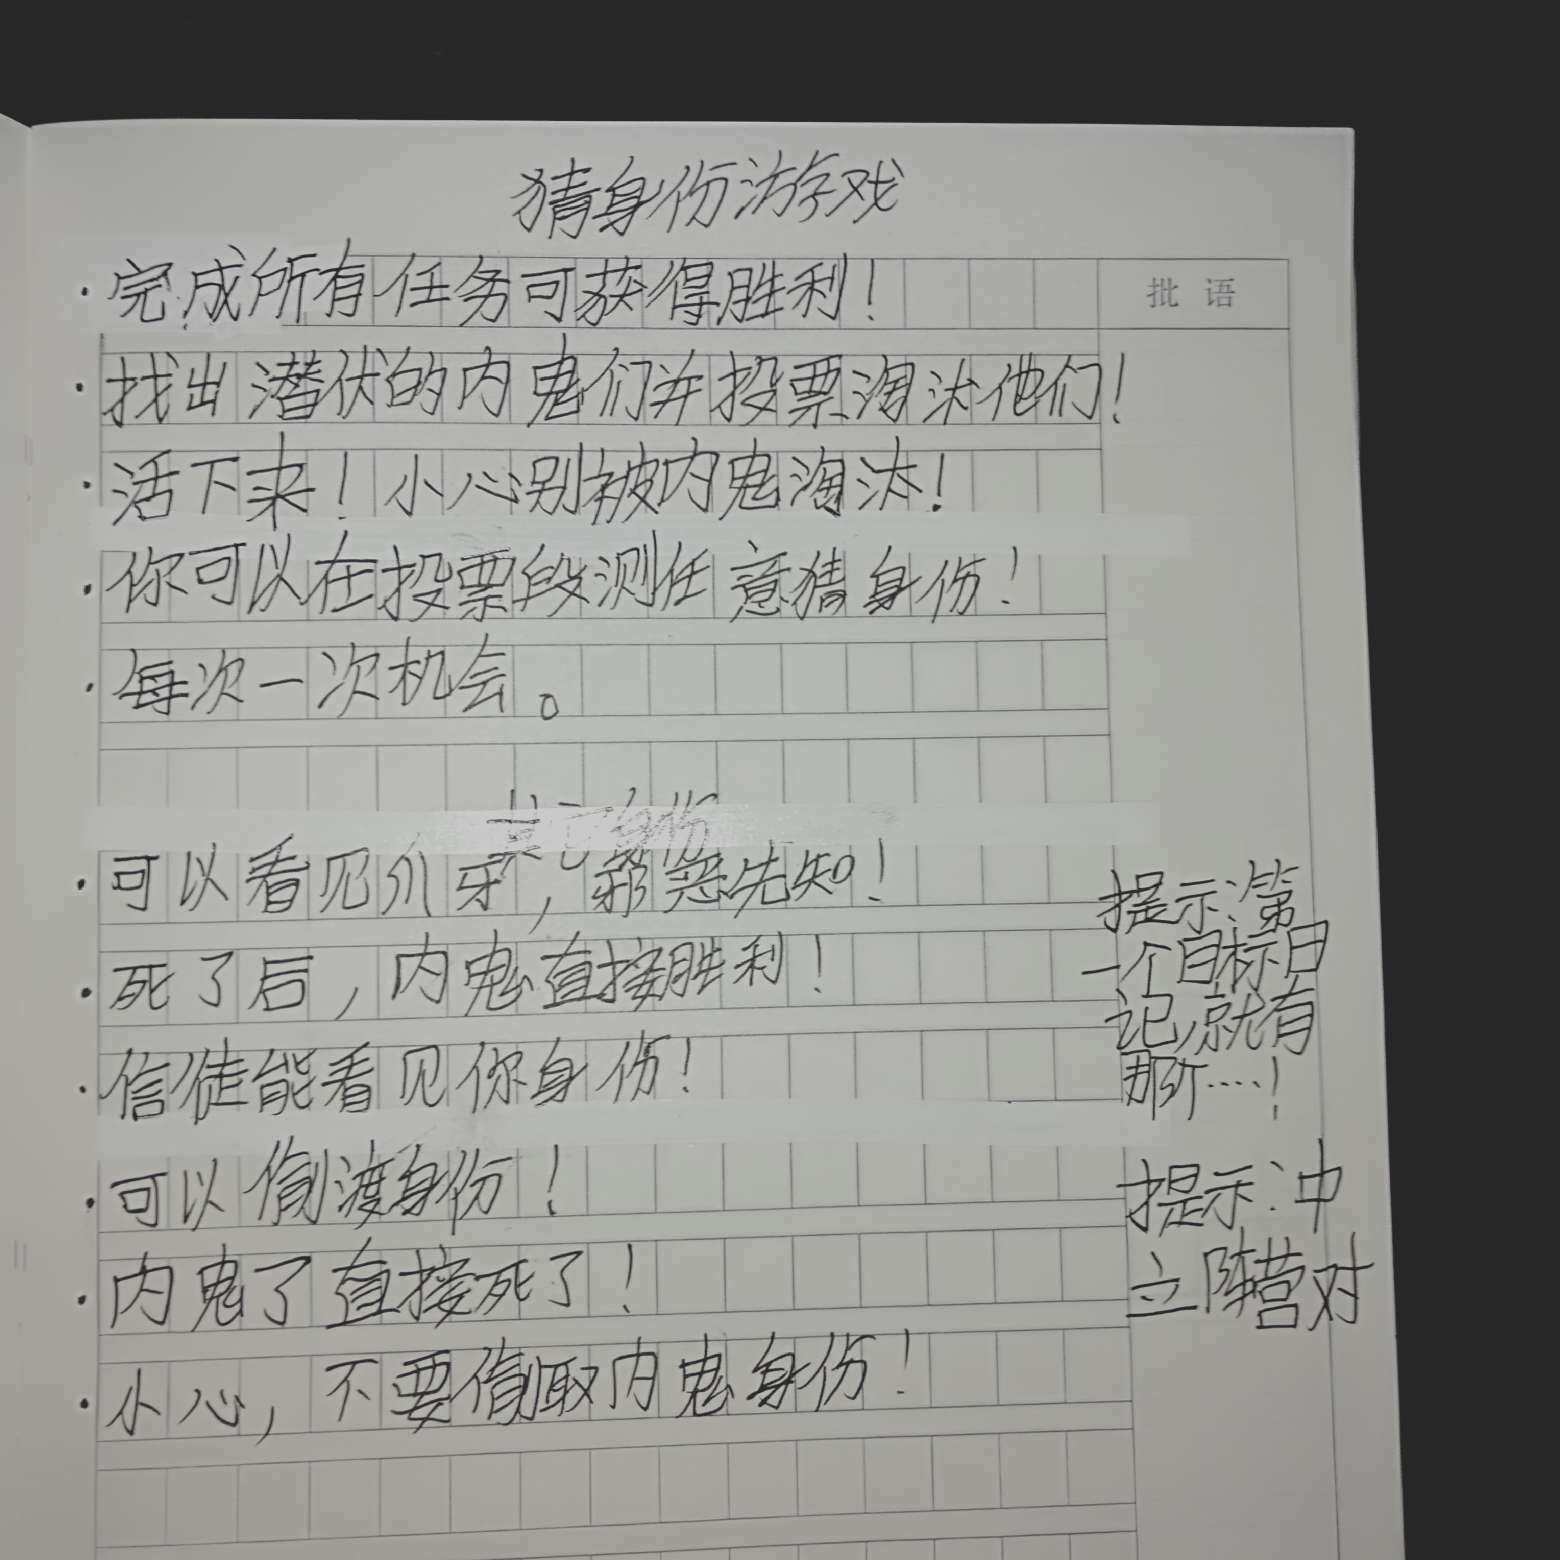 猜身份游戏
·完成所有任务可获得胜利！
批语
·找出潜伏的内鬼们并投票淘汰他们！
·活下来！小心别被内鬼淘汰！
·你可以在投票段测任意猜身份！
·每次一次机会。
身份
·可以看见爪牙，邪恶先知！
·死了后，内鬼直接胜利！
·信徒能看见你身份！
提示：第
一个目标日
记，就有
那个……！
·可以偷渡身份！
·内鬼了直接死了！
·小心，不要偷取内鬼身份！
提示：中
立阵营对